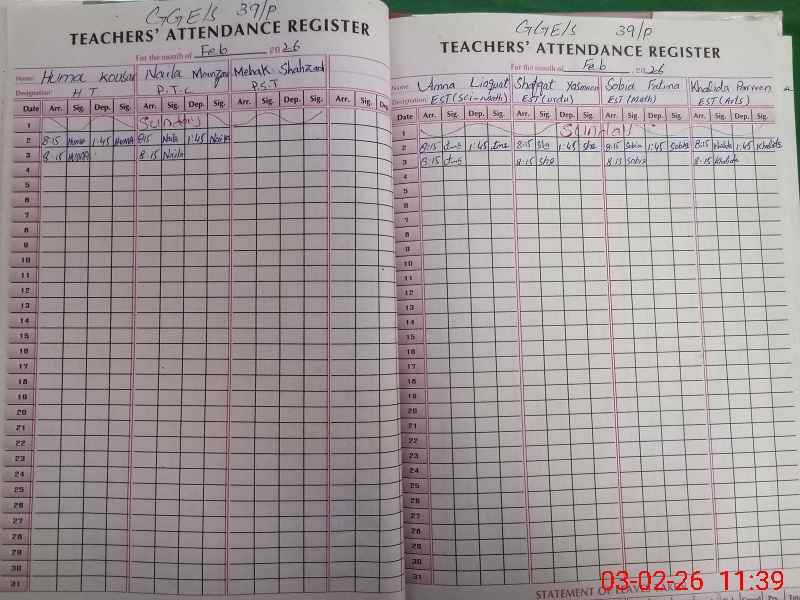 GGE/S 39/P
TEACHERS' ATTENDANCE REGISTER
For the month of Feb 2026
Name: Huma Kousar Naila Manzoor Mehak Shahzad
Designation: H T P.T.C P.S.T
Date Arr. Sig. Dep. Sig. Arr. Sig. Dep. Sig. Arr. Sig. Dep. Sig. Arr. Sig. Dep.
1 Sunday
2 8:15 Huma 1:45 Huma 8:15 Naila 1:45 Naila
3 8:15 Huma 8:15 Naila
4
5
6
7
8
9
10
11
12
13
14
15
16
17
18
19
20
21
22
23
24
25
26
27
28
29
30
31
GGE/S 39/P
TEACHERS' ATTENDANCE REGISTER
For the month of Feb 2026
Name Amna Shafqat Yasmeen Sabia Fatima Khalida Parveen
Designation EST (Sci-math) EST (urdu) EST (math) EST (Arts)
Date Arr. Sig. Dep. Sig. Arr. Sig. Dep. Sig. Arr. Sig. Dep. Sig. Arr. Sig. Dep. Sig.
1 Sunday
2 8:15 1:45 8:15 Sha 1:45 Sha 8:15 Sabia 1:45 Sabia 8:15 Khalida 1:45 Khalida
3 8:15 8:15 Sha 8:15 Sabia 8:15 Khalida
4
5
6
7
8
9
10
11
12
13
14
15
16
17
18
19
20
21
22
23
24
25
26
27
28
29
30
31
STATEMENT OF LEAVE TAKEN
03-02-26 11:39